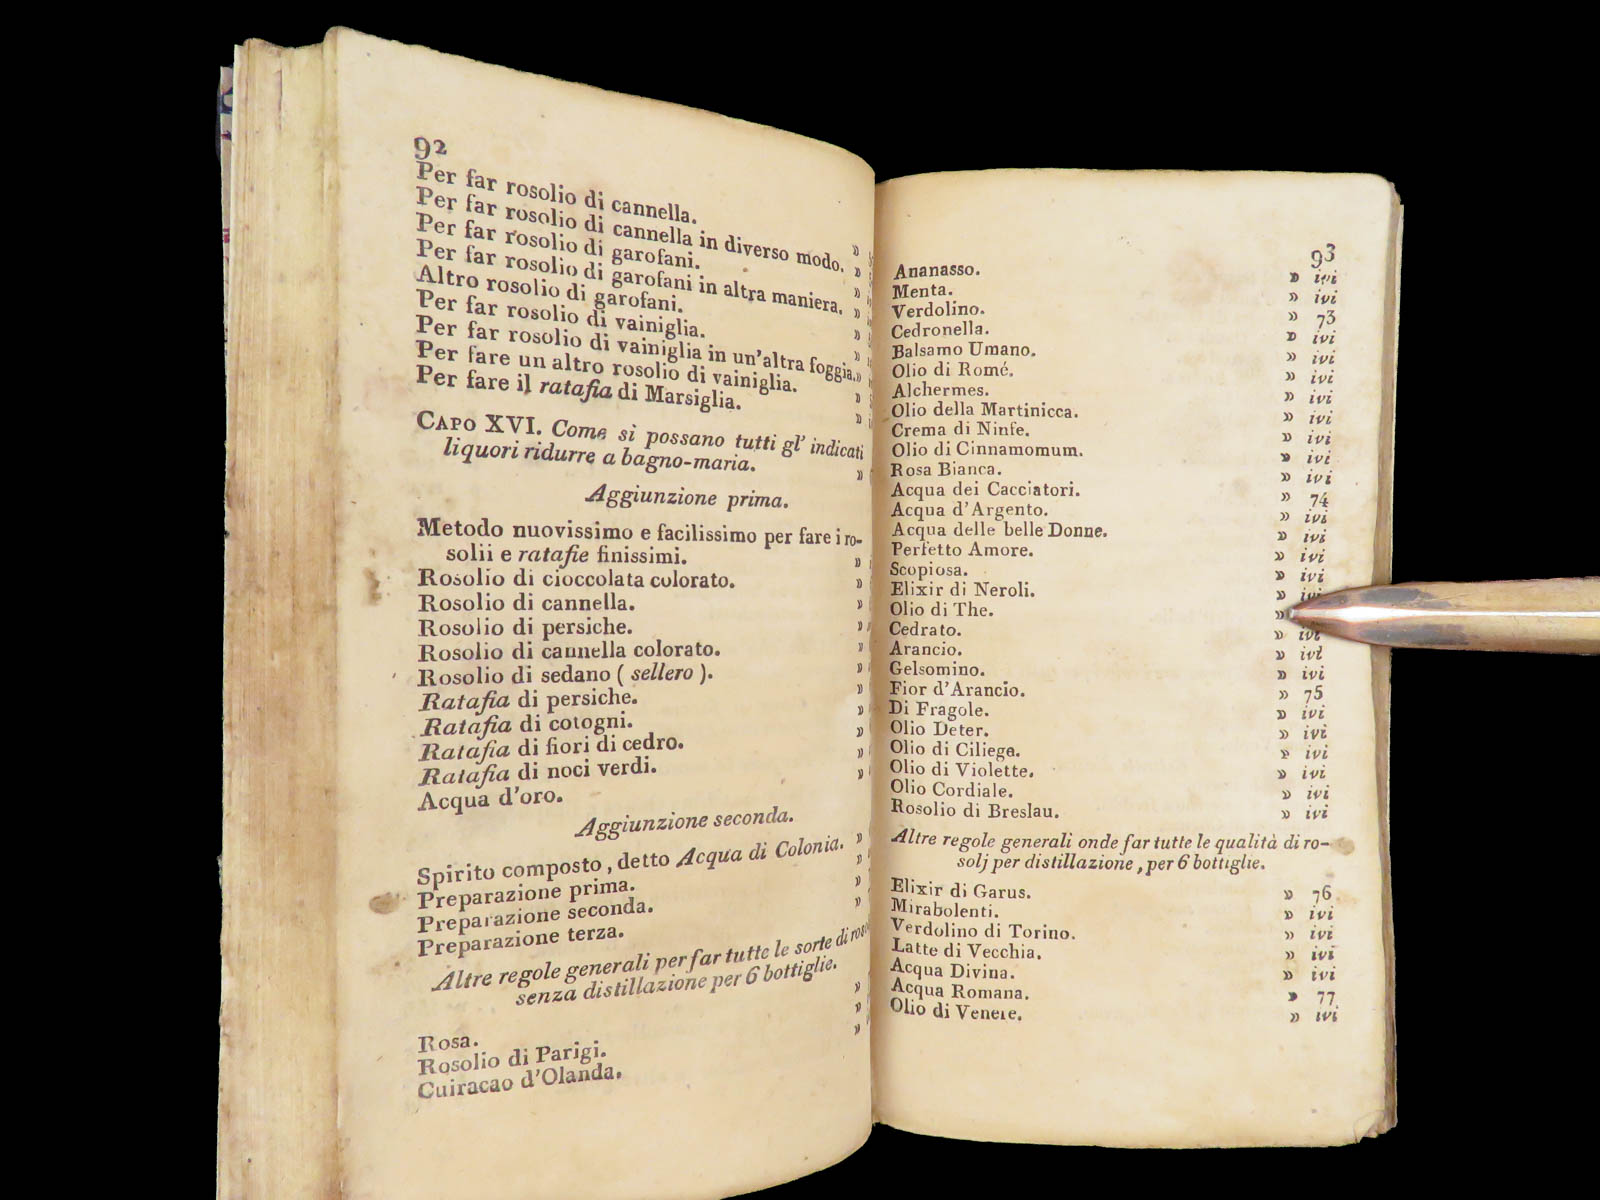 92
Per far rosolio di cannella.
Per far rosolio di cannella in diverso modo. »
Per far rosolio di garofani. »
Per far rosolio di garofani in altra maniera. »
Altro rosolio di garofani. »
Per far rosolio di vainiglia. »
Per far rosolio di vainiglia in un'altra foggia. »
Per fare un altro rosolio di vainiglia. »
Per fare il ratafia di Marsiglia. »
CAPO XVI. Come si possano tutti gl' indicati
liquori ridurre a bagno-maria. »
Aggiunzione prima.
Metodo nuovissimo e facilissimo per fare i ro-
solii e ratafie finissimi. »
Rosolio di cioccolata colorato. »
Rosolio di cannella. »
Rosolio di persiche. »
Rosolio di cannella colorato. »
Rosolio di sedano ( sellero ). »
Ratafia di persiche. »
Ratafia di cotogni. »
Ratafia di fiori di cedro. »
Ratafia di noci verdi. »
Acqua d'oro.
Aggiunzione seconda.
Spirito composto, detto Acqua di Colonia. »
Preparazione prima. »
Preparazione seconda. »
Preparazione terza. »
Altre regole generali per far tutte le sorte di
senza distillazione per 6 bottiglie.
Rosa. »
Rosolio di Parigi. »
Cuiracao d'Olanda. »
93
Ananasso. » ivi
Menta. » ivi
Verdolino. » 73
Cedronella. » ivi
Balsamo Umano. » ivi
Olio di Romé. » ivi
Alchermes. » ivi
Olio della Martinicca. » ivi
Crema di Ninfe. » ivi
Olio di Cinnamomum. » ivi
Rosa Bianca. » ivi
Acqua dei Cacciatori. » 74
Acqua d'Argento. » ivi
Acqua delle belle Donne. » ivi
Perfetto Amore. » ivi
Scopiosa. » ivi
Elixir di Neroli. » ivi
Olio di The. »
Cedrato. » ivi
Arancio. » ivi
Gelsomino. » ivi
Fior d'Arancio. » 75
Di Fragole. » ivi
Olio Deter. » ivi
Olio di Ciliege. » ivi
Olio di Violette. » ivi
Olio Cordiale. » ivi
Rosolio di Breslau. » ivi
Altre regole generali onde far tutte le qualità di ro-
solj per distillazione, per 6 bottiglie.
Elixir di Garus. » 76
Mirabolenti. » ivi
Verdolino di Torino. » ivi
Latte di Vecchia. » ivi
Acqua Divina. » ivi
Acqua Romana. » 77
Olio di Venere. » ivi